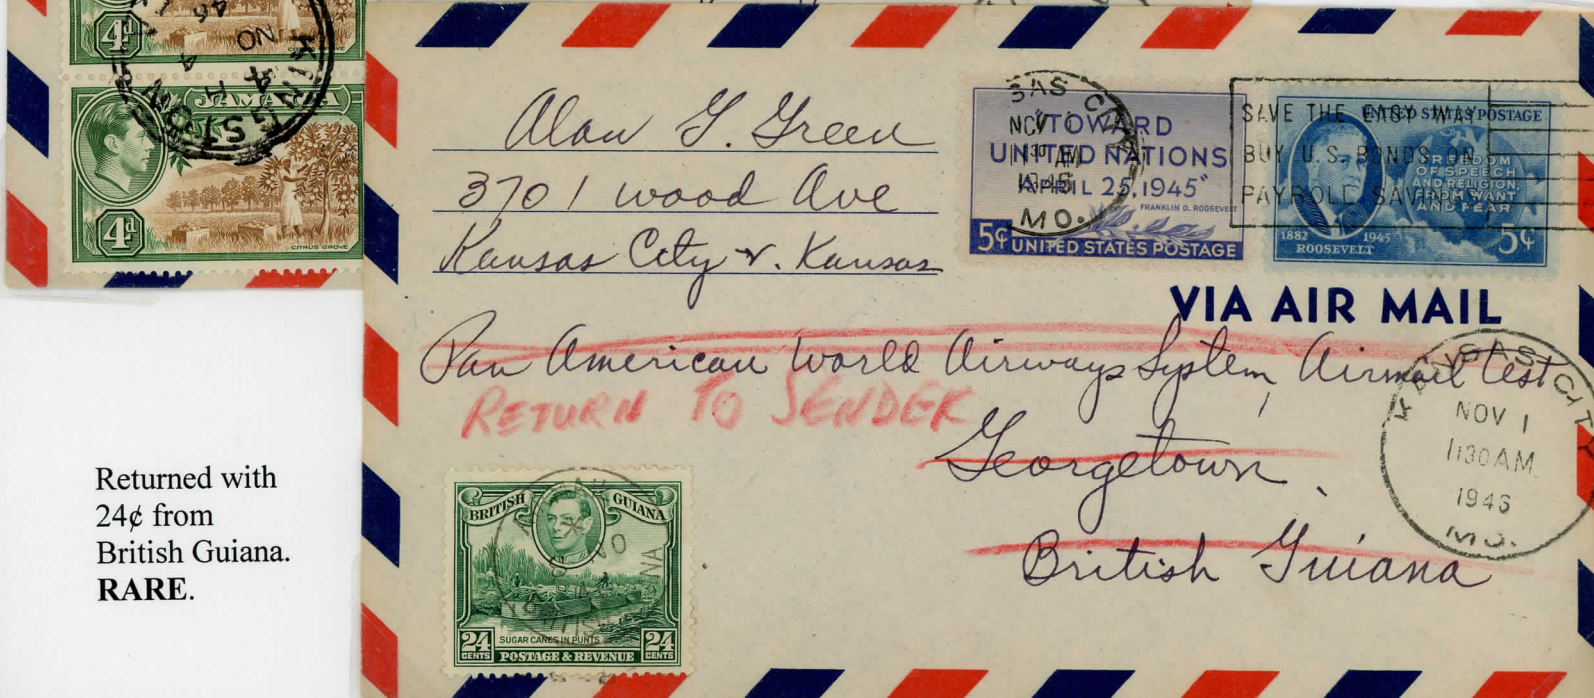 4d
46
NO
4
KINGSTON
JAMAICA
4d
CITRUS GROVE
Returned with
24¢ from
British Guiana.
RARE.
Alan G. Green
3701 Wood Ave
Kansas City r. Kansas
"TOWARD
UNITED NATIONS
APRIL 25, 1945"
FRANKLIN D. ROOSEVELT
5¢ UNITED STATES POSTAGE
SAS CITY
NOV 1
1130 AM
1946
MO.
SAVE THE EASY WAY
BUY U.S. BONDS ON
PAYROLL SAVINGS
UNITED STATES POSTAGE
FREEDOM
OF SPEECH
AND RELIGION,
FROM WANT
AND FEAR
1882 1945
ROOSEVELT
5¢
VIA AIR MAIL
Pan American World Airways System, Airmail Test
RETURN TO SENDER
Georgetown.
British Guiana
KANSAS CITY
NOV 1
1130 AM
1946
MO.
BRITISH GUIANA
NO
24 CENTS
SUGAR CANES IN PUNTS
POSTAGE & REVENUE
24 CENTS